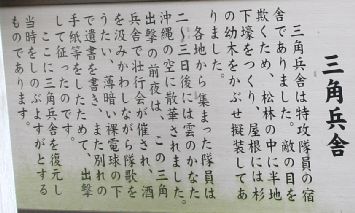 三角兵舎
三角兵舎は特攻隊員の宿
舎でありました。敵の目を
欺くため、松林の中に半地
下壕をつくり、屋根には杉
の幼木をかぶせ擬装してあ
りました。
各地から集まった隊員は
二〜三日後には雲のかなた
沖縄の空に散華されました。
出撃の前夜は、この三角
兵舎で壮行会が催され、酒
を汲みかわしながら隊歌を
うたい、薄暗い裸電球の下
で遺書を書き、また別れの
手紙等をしたためて出撃
して征ったのです。
ここに三角兵舎を復元し
当時をしのぶよすがとする
ものであります。